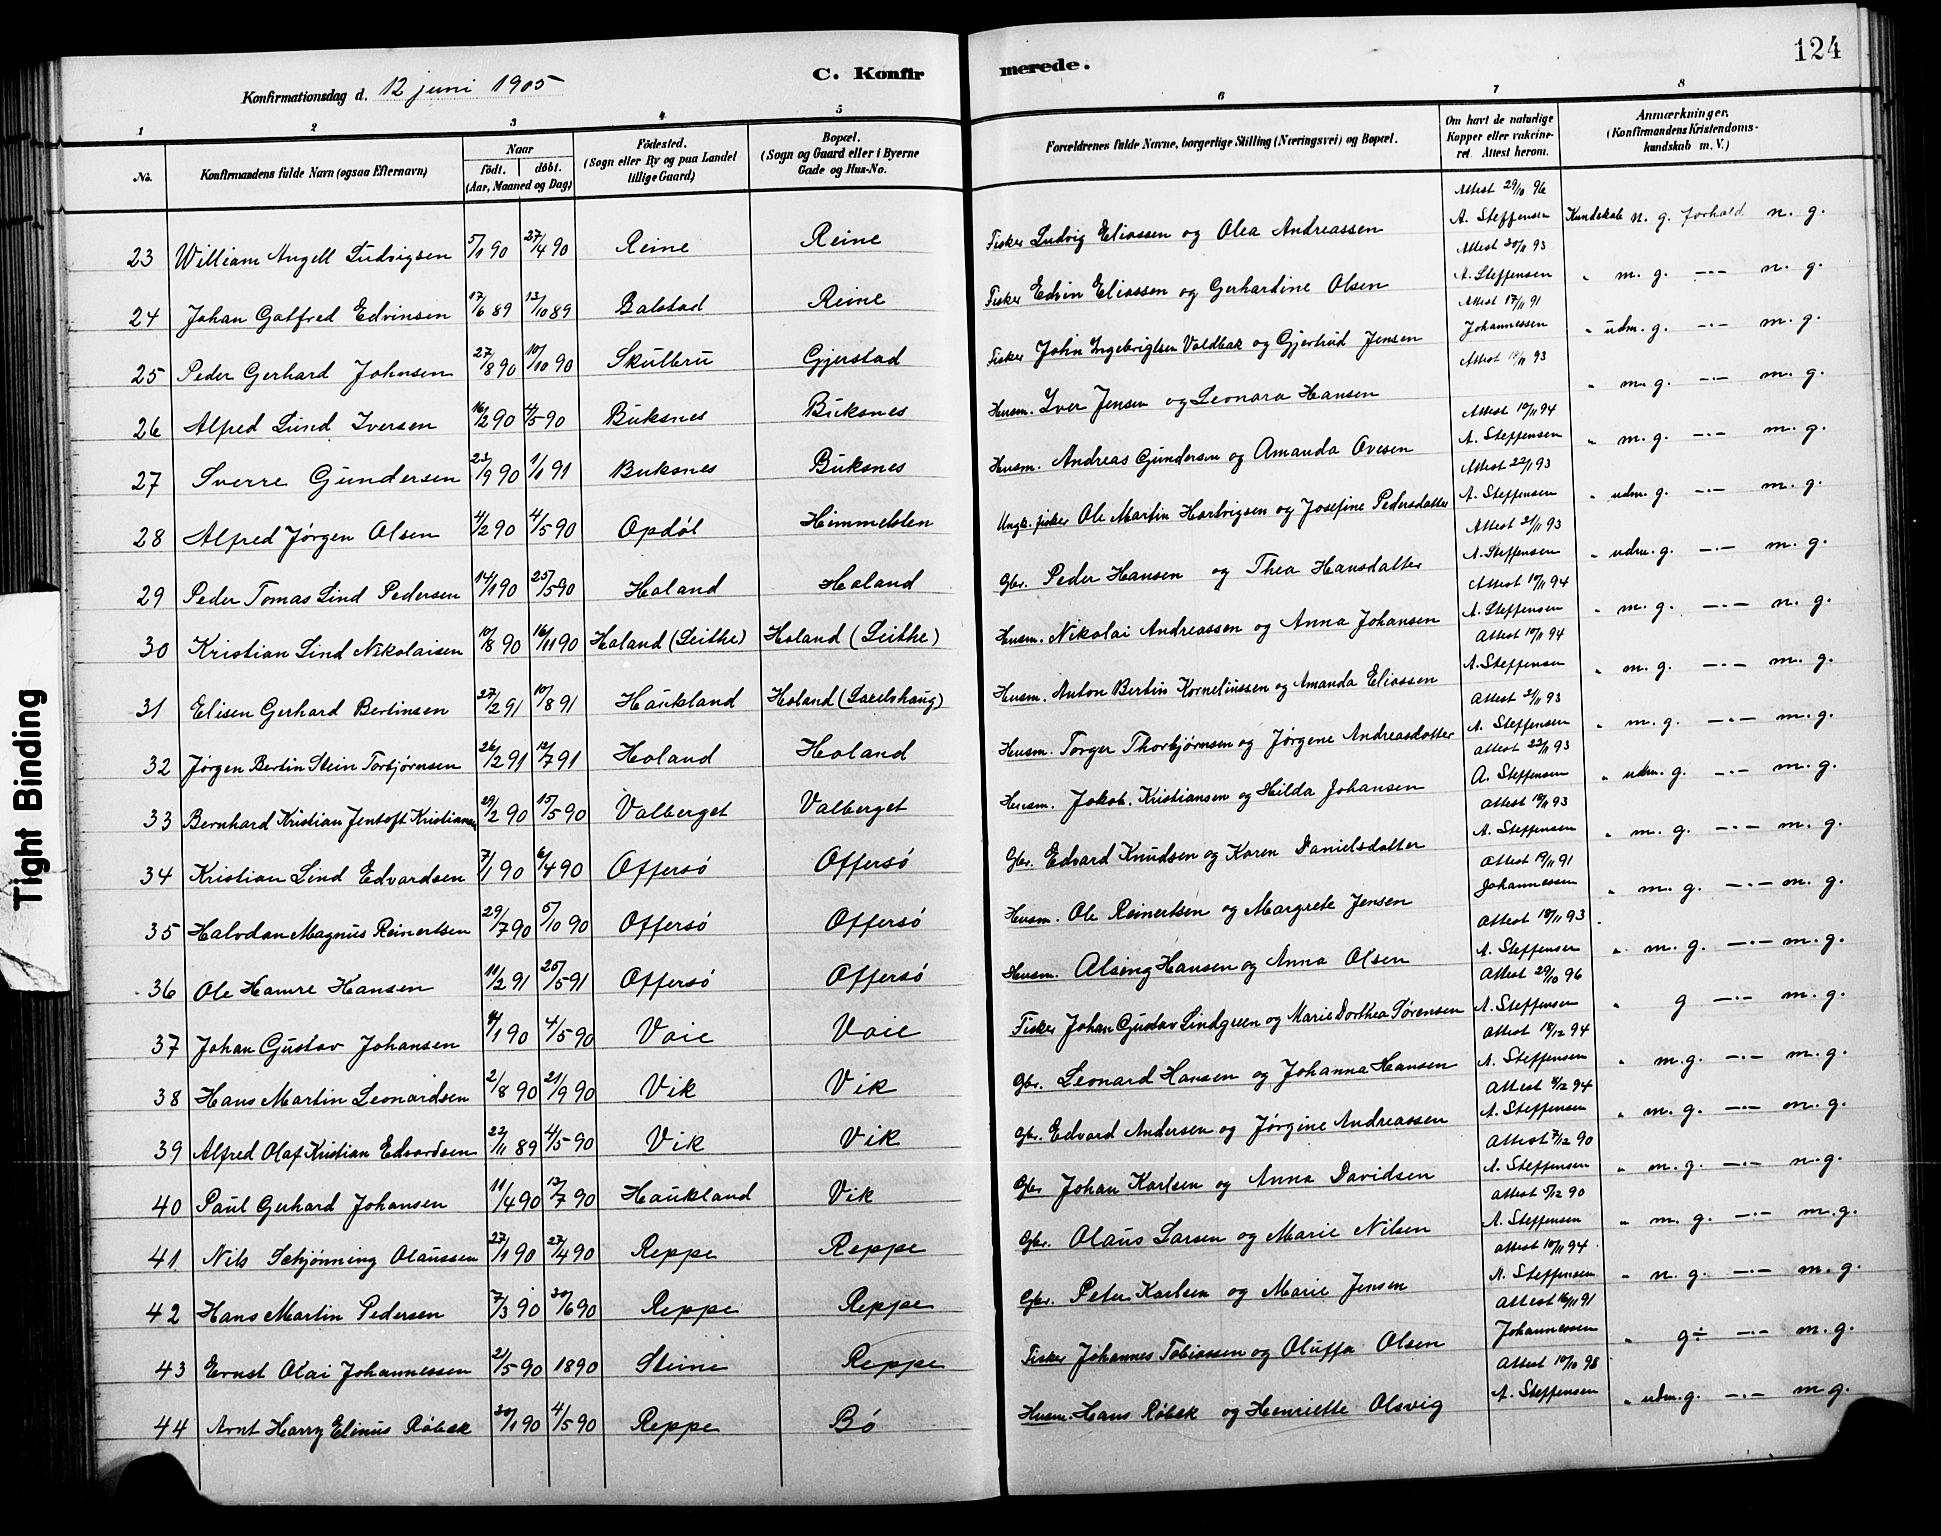 124
C. Konfirmerede.
Konfirmationsdag d. 12 juni 1905
1 2 3 4 5 6 7 8
No. Konfirmandens fulde Navn (ogsaa Efternavn) Naar födt. döbt. (Aar, Maaned og Dag) Födested. (Sogn eller By og paa Landet tillige Gaard) Bopæl. (Sogn og Gaard eller i Byerne Gade og Hus-No. Forældrenes fulde Navne, borgerlige Stilling (Næringsvei) og Bopæl. Om havt de naturlige Kopper eller vakcineret. Attest herom. Anmærkninger. (Konfirmandens Kristendomskundskab m. V.)
23 William Angell Ludvigsen 5/1 90 27/4 90 Reine Reine Fisker Ludvig Eliassen og Olea Andreassen Attest 29/10 96 A. Steffensen Kundskab n. g. forhold n. g.
24 Johan Gotfred Edvinsen 17/6 89 13/10 89 Balstad Reine Fisker Edvin Eliassen og Gerhardine Olsen Attest 20/11 93 A. Steffensen " m. g. -"- n. g.
25 Peder Gerhard Johnsen 27/8 90 10/10 90 Skulbru Gjerstad Fisker John Ingebrigtsen Voldbak og Gjertrud Jensen Attest 17/11 91 Johannessen " udm. g. -"- m. g.
26 Alfred Lund Iversen 16/2 90 4/5 90 Buksnes Buksnes Husm. Iver Jensen og Leonara Hansen Attest 18/11 93 " m. g. -"- m. g.
27 Sverre Gundersen 23/9 90 1/1 91 Buksnes Buksnes Husm. Andreas Gundersen og Amanda Ovesen Attest 10/11 94 A. Steffensen " m. g. -"- m. g.
28 Alfred Jørgen Olsen 4/2 90 4/5 90 Opdøl Himmelsten Ungk. fisker Ole Martin Hartvigsen og Josefine Pedersdatter Attest 22/11 93 A. Steffensen " udm. g. -"- m. g.
29 Peder Tomas Lind Pedersen 14/1 90 25/5 90 Holand Holand Gbr. Peder Hansen og Thea Hansdatter Attest 21/11 93 A. Steffensen " udm. g. -"- m. g.
30 Kristian Lind Nikolaisen 10/8 90 16/11 90 Holand (Leithe) Holand (Leithe) Husm. Nikolai Andreassen og Anna Johansen Attest 10/11 94 A. Steffensen " m. g. -"- n. g.
31 Elisen Gerhard Bertinsen 27/2 91 10/8 91 Haukland Holand Husm. Anton Bertin Korneliussen og Amanda Eliassen Attest 10/11 94 A. Steffensen " m. g. -"- m. g.
32 Jørgen Bertin Stein Torbjørnsen 26/2 91 12/7 91 Holand Holand Husm. Torger Thorbjørnsen og Jørgene Andreasdatter Attest 21/11 93 A. Steffensen " m. g. -"- m. g.
33 Bernhard Kristian Jentoft Kristiansen 29/2 90 15/5 90 Valberget Valberget Husm. Jakob Kristiansen og Hilda Johansen Attest 22/11 93 A. Steffensen " udm. g. -"- m. g.
34 Kristian Lind Edvardsen 7/1 90 6/4 90 Offersö Offersö Gbr. Edvard Knudsen og Karen Danielsdatter Attest 18/11 93 A. Steffensen " m. g. -"- m. g.
35 Halvdan Magnus Reinertsen 29/7 90 5/10 90 Offersö Offersö Husm. Ole Reinertsen og Margrete Jensen Attest 19/11 91 Johannessen " m. g. -"- m. g.
36 Ole Hamre Hansen 11/2 91 25/5 91 Offersö Offersö Husm. Alsing Hansen og Anna Olsen Attest 18/11 93 A. Steffensen " m. g. -"- m. g.
37 Johan Gustav Johansen 4/1 90 4/5 90 Voie Voie Fisker Johan Gustav Lindgreen og Marie Dorthea Sørensen Attest 29/10 96 A. Steffensen " g -"- m. g.
38 Hans Martin Leonardsen 2/8 90 21/9 90 Vik Vik Gbr. Leonard Hansen og Johanna Hansen Attest 18/12 94 A. Steffensen " m. g. -"- m. g.
39 Alfred Olaf Kristian Edvardsen 22/11 89 4/5 90 Vik Vik Gbr. Edvard Andersen og Jørgine Andreassen Attest 8/12 94 A. Steffensen " m. g. -"- m. g.
40 Paul Gerhard Johansen 11/4 90 13/7 90 Haukland Vik Gbr Johan Karlsen og Anna Davidsen Attest 7/12 90 A. Steffensen " m. g. -"- n. g.
41 Nils Schjønning Olaussen 27/1 90 27/4 90 Reppe Reppe Gbr. Olaus Larsen og Marie Nilsen Attest 5/12 90 A. Steffensen " m. g. -"- m. g.
42 Hans Martin Pedersen 7/3 90 30/6 90 Reppe Reppe Gbr. Peter Karlsen og Marie Jensen Attest 10/11 94 A. Steffensen " n. g. -"- m. g.
43 Ernst Olai Johannessen 21/5 90 1890 Steine Reppe Fisker Johannes Tobiassen og Oluffa Olsen Attest 16/11 91 Johannessen " g÷ -"- m. g.
44 Arnt Harry Elinus Røbek 30/1 90 4/5 90 Reppe Bö Husm. Hans Røbek og Henriette Olsvig Attest 10/10 98 A. Steffensen " udm. g. -"- m. g.
Tight Binding